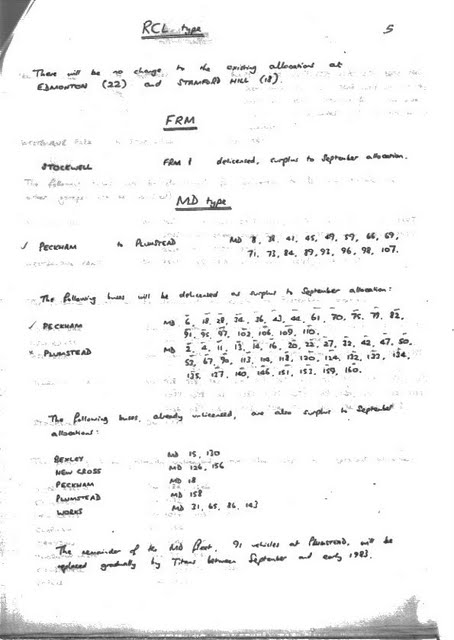 RCL type
5
There will be no change to the existing allocations at
EDMONTON (22) and STAMFORD HILL (18)
FRM
STOCKWELL FRM 1 delicensed, surplus to September allocation.
MD type
✓ PECKHAM to PLUMSTEAD MD 8, 38, 41, 45, 49, 59, 66, 69,
71, 73, 84, 89, 93, 96, 98, 107.
The following buses will be delicensed as surplus to September allocation:
✓ PECKHAM MD 6, 18, 28, 34, 36, 43, 44, 61, 70, 75, 79, 82,
91, 95, 97, 102, 106, 109, 110.
× PLUMSTEAD MD 2, 4, 11, 13, 14, 16, 20, 22, 27, 32, 42, 47, 50,
52, 67, 90, 113, 114, 118, 120, 124, 132, 133, 134,
135, 137, 140, 146, 151, 153, 159, 160.
The following buses, already unlicensed, are also surplus to September
allocations:
BEXLEY MD 15, 130
NEW CROSS MD 126, 156
PECKHAM MD 18
PLUMSTEAD MD 158
WORKS MD 31, 65, 86, 143
The remainder of the MD fleet, 91 vehicles at PLUMSTEAD, will be
replaced gradually by Titans between September and early 1983.